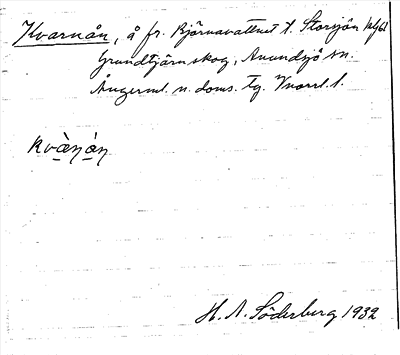 Kvarnån, å fr. Björnavattnet t. Storsjön
Grundtjärnskog, Anundsjö sn.
Ångerml. n. doms. tg. Vnorrl. l.
kvὰṇάṇ
H. A. Söderberg 1932